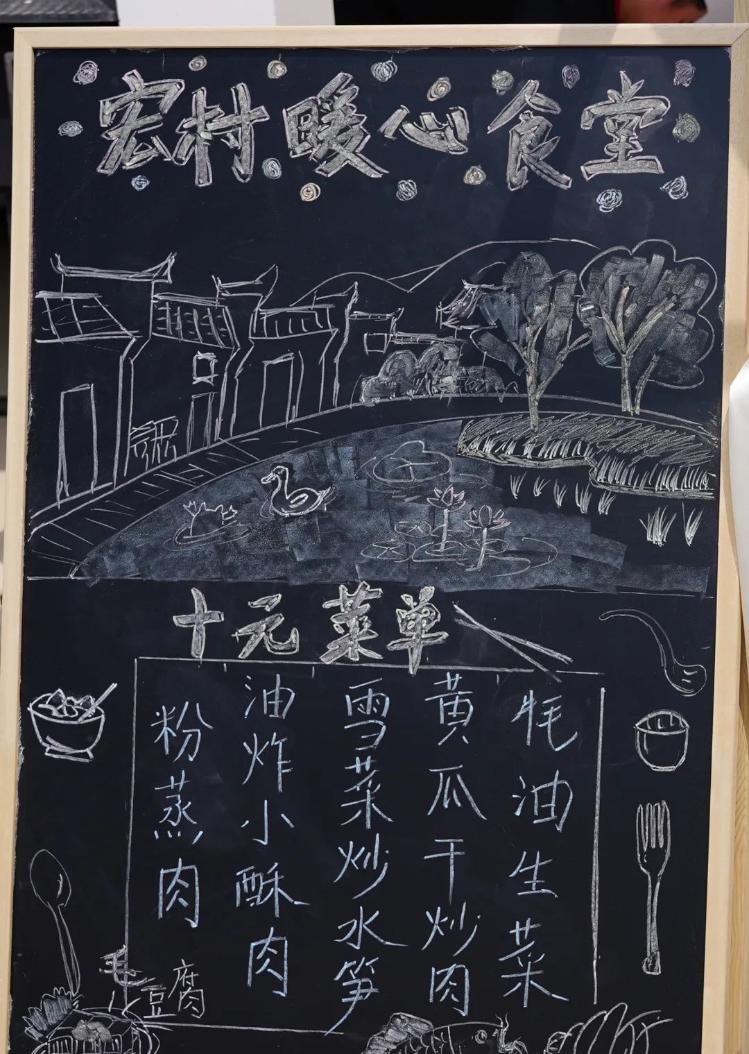 宏村暖心食堂
十元菜单
牦油生菜
黄瓜干炒肉
雪菜炒水笋
油炸小酥肉
粉蒸肉
毛豆腐